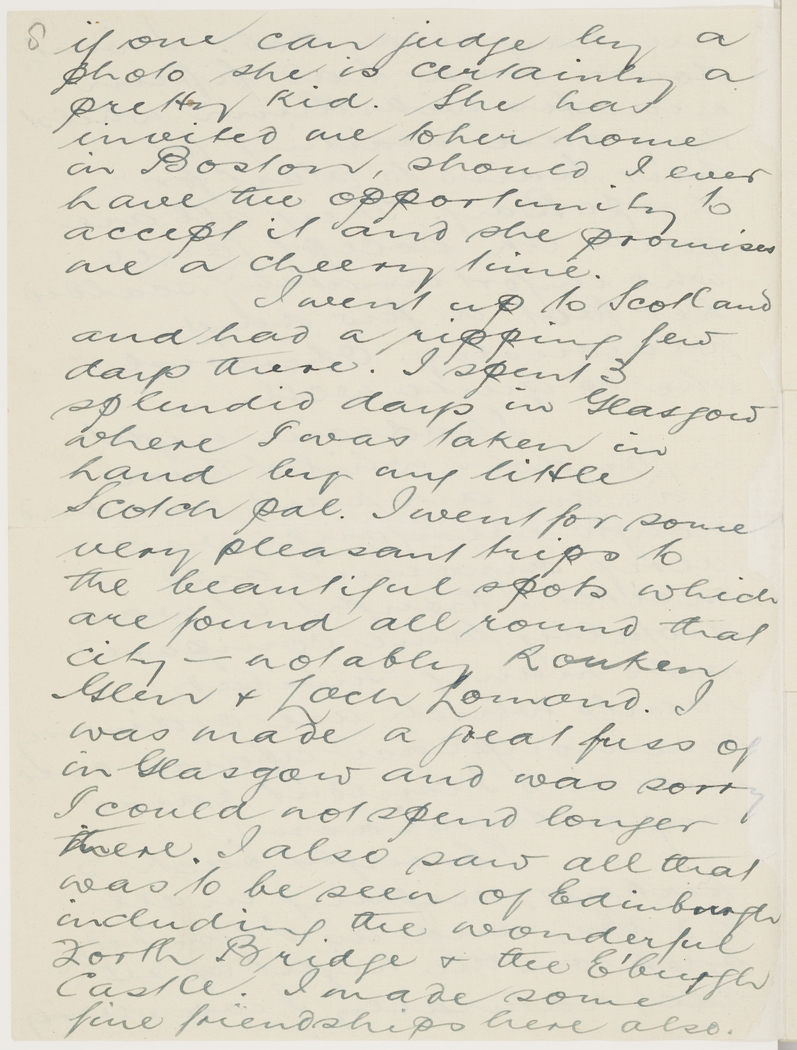 8 if one can judge by a
photo she is certainly a
pretty kid. She has
invited me to her home
in Boston, should I ever
have the opportunity to
accept it and she promises
me a cheery time.
I went up to Scotland
and had a ripping few
days there. I spent 3
splendid days in Glasgow
where I was taken in
hand by my little
Scotch pal. I went for some
very pleasant trips to
the beautiful spots which
are found all round that
city — notably Rouken
Glen & Loch Lomond. I
was made a great fuss of
in Glasgow and was sorry
I could not spend longer
there. I also saw all that
was to be seen of Edinburgh
including the wonderful
Forth Bridge & the E'burgh
Castle. I made some
fine friendships here also.